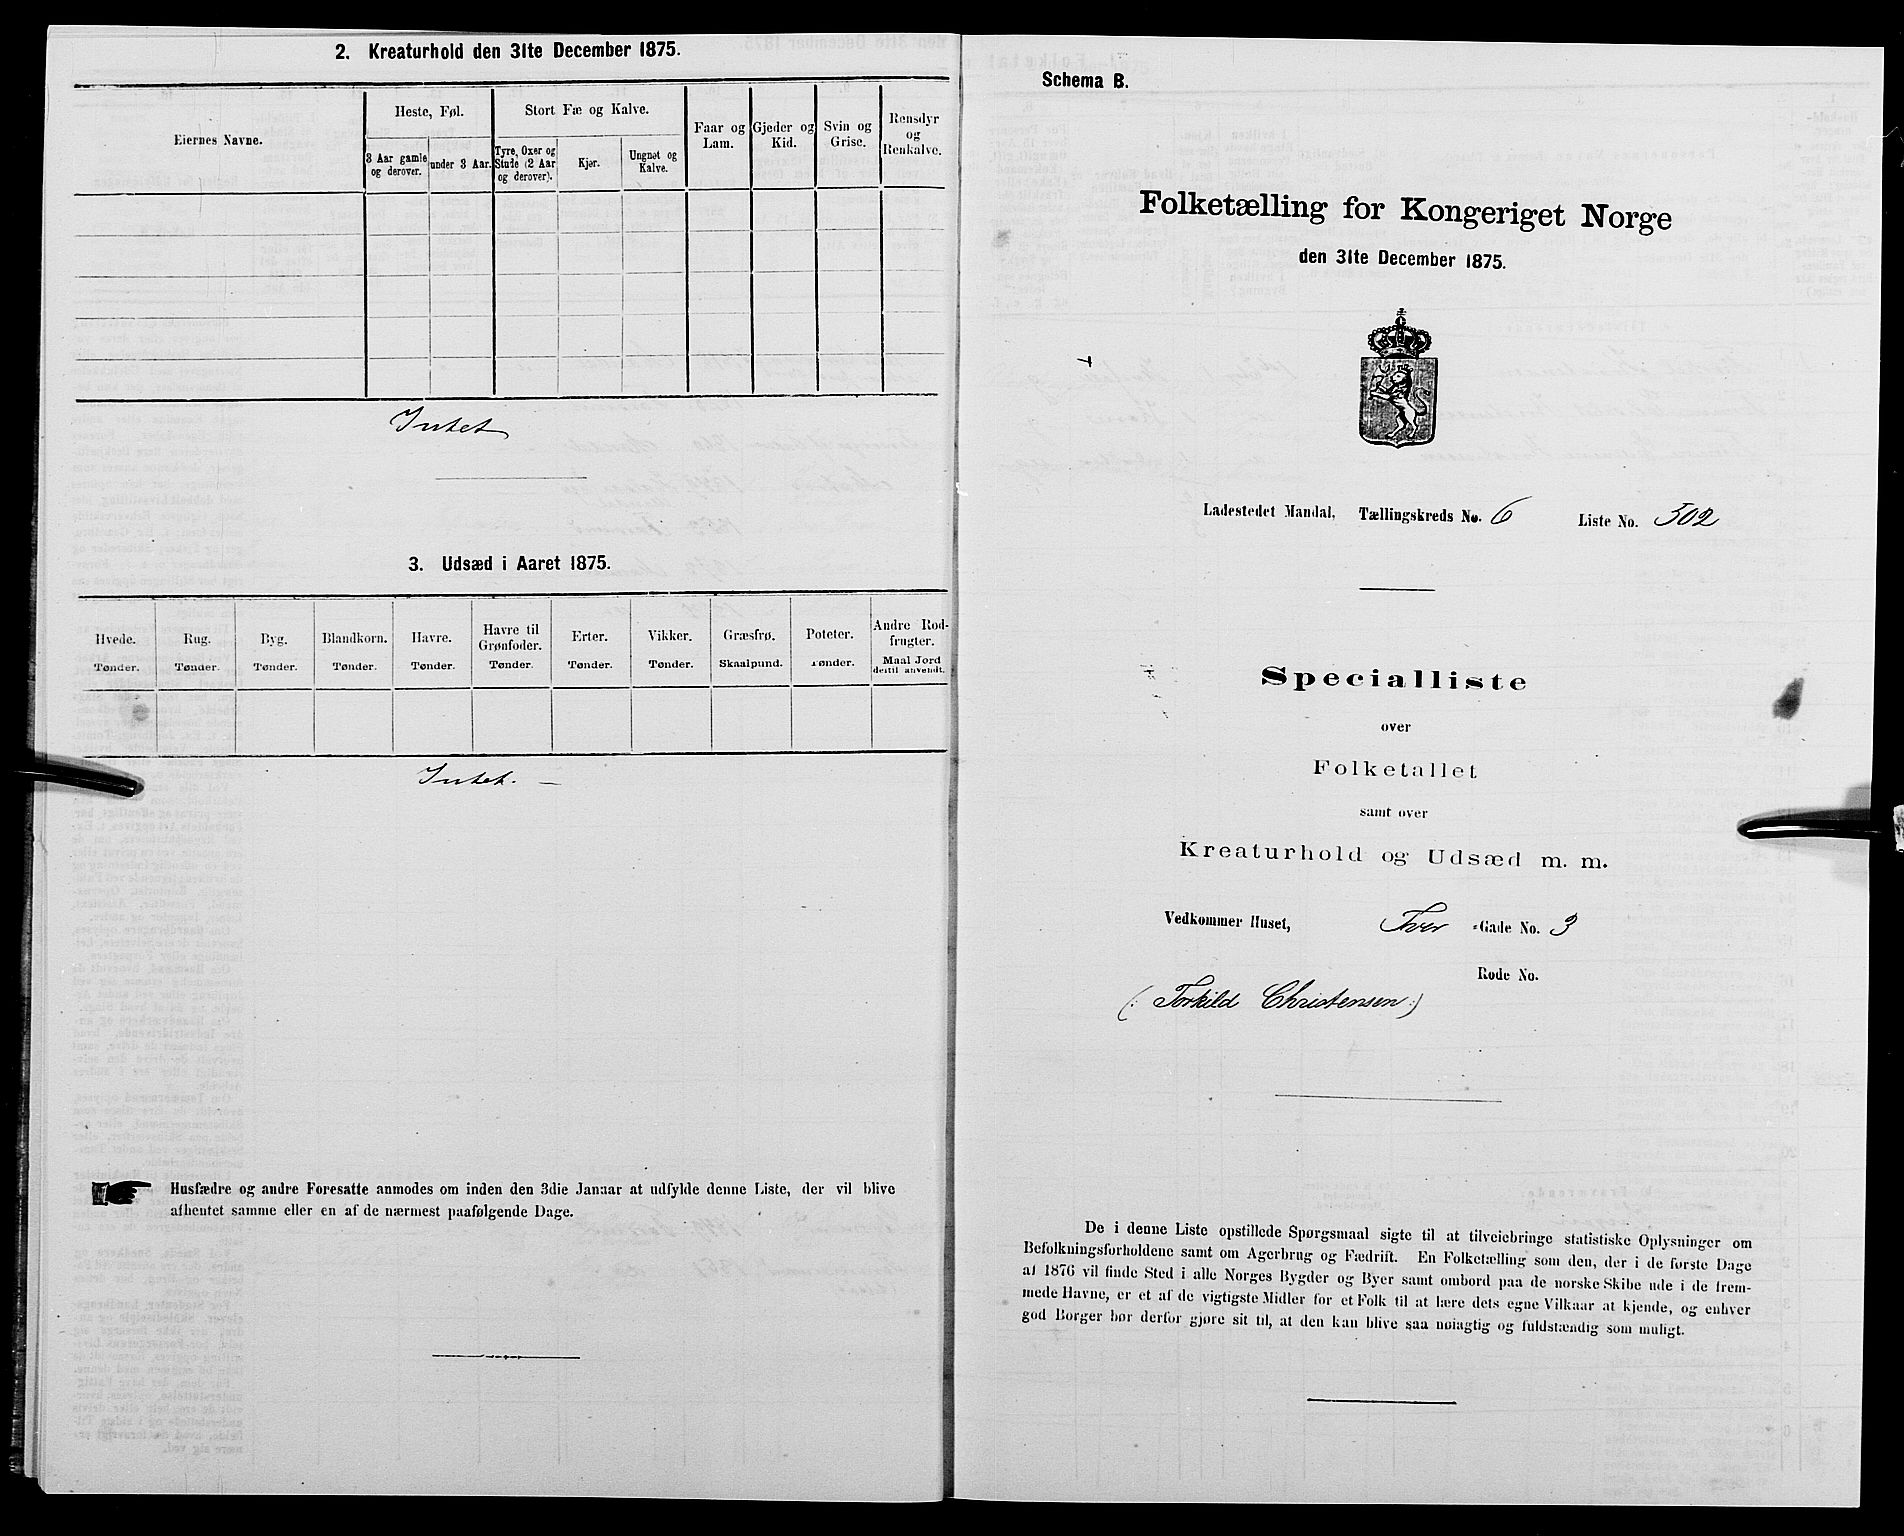 2. Kreaturhold den 31te December 1875.
Eiernes Navne.
Heste, Føl.
Stort Fæ og Kalve.
Faar og
Lam.
Gjeder og
Kid.
Svin og
Grise.
Rensdyr
og
Renkalve.
3 Aar gamle
og derover.
under 3 Aar.
Tyre, Oxer og
Stude (2 Aar
og derover).
Kjør.
Ungnøt og
Kalve.
Intet
3. Udsæd i Aaret 1875.
Hvede.
Tønder.
Rug.
Tønder.
Byg.
Tønder.
Blandkorn.
Tønder.
Havre.
Tønder.
Havre til
Grønfoder.
Tønder.
Erter.
Tønder.
Vikker.
Tønder.
Græsfrø.
Skaalpund.
Poteter.
Tønder.
Andre Rod-
frugter.
Maal Jord
dertil anvendt.
Intet. —
Husfædre og andre Foresatte anmodes om inden den 3die Januar at udfylde denne Liste, der vil blive
afhentet samme eller en af de nærmest paafølgende Dage.
Schema B.
Folketælling for Kongeriget Norge
den 31te December 1875.
Ladestedet Mandal, Tællingskreds No. 6 Liste No. 502
Specialliste
over
Folketallet
samt over
Kreaturhold og Udsæd m. m.
Vedkommer Huset, Tver -Gade No. 3
Rode No.
(: Torkild Christensen :)
De i denne Liste opstillede Spørgsmaal sigte til at tilveiebringe statistiske Oplysninger om
Befolkningsforholdene samt om Agerbrug og Fædrift. En Folketælling som den, der i de første Dage
af 1876 vil finde Sted i alle Norges Bygder og Byer samt ombord paa de norske Skibe ude i de frem-
mede Havne, er et af de vigtigste Midler for et Folk til at lære dets egne Vilkaar at kjende, og enhver
god Borger bør derfor gjøre sit til, at den kan blive saa nøiagtig og fuldstændig som muligt.